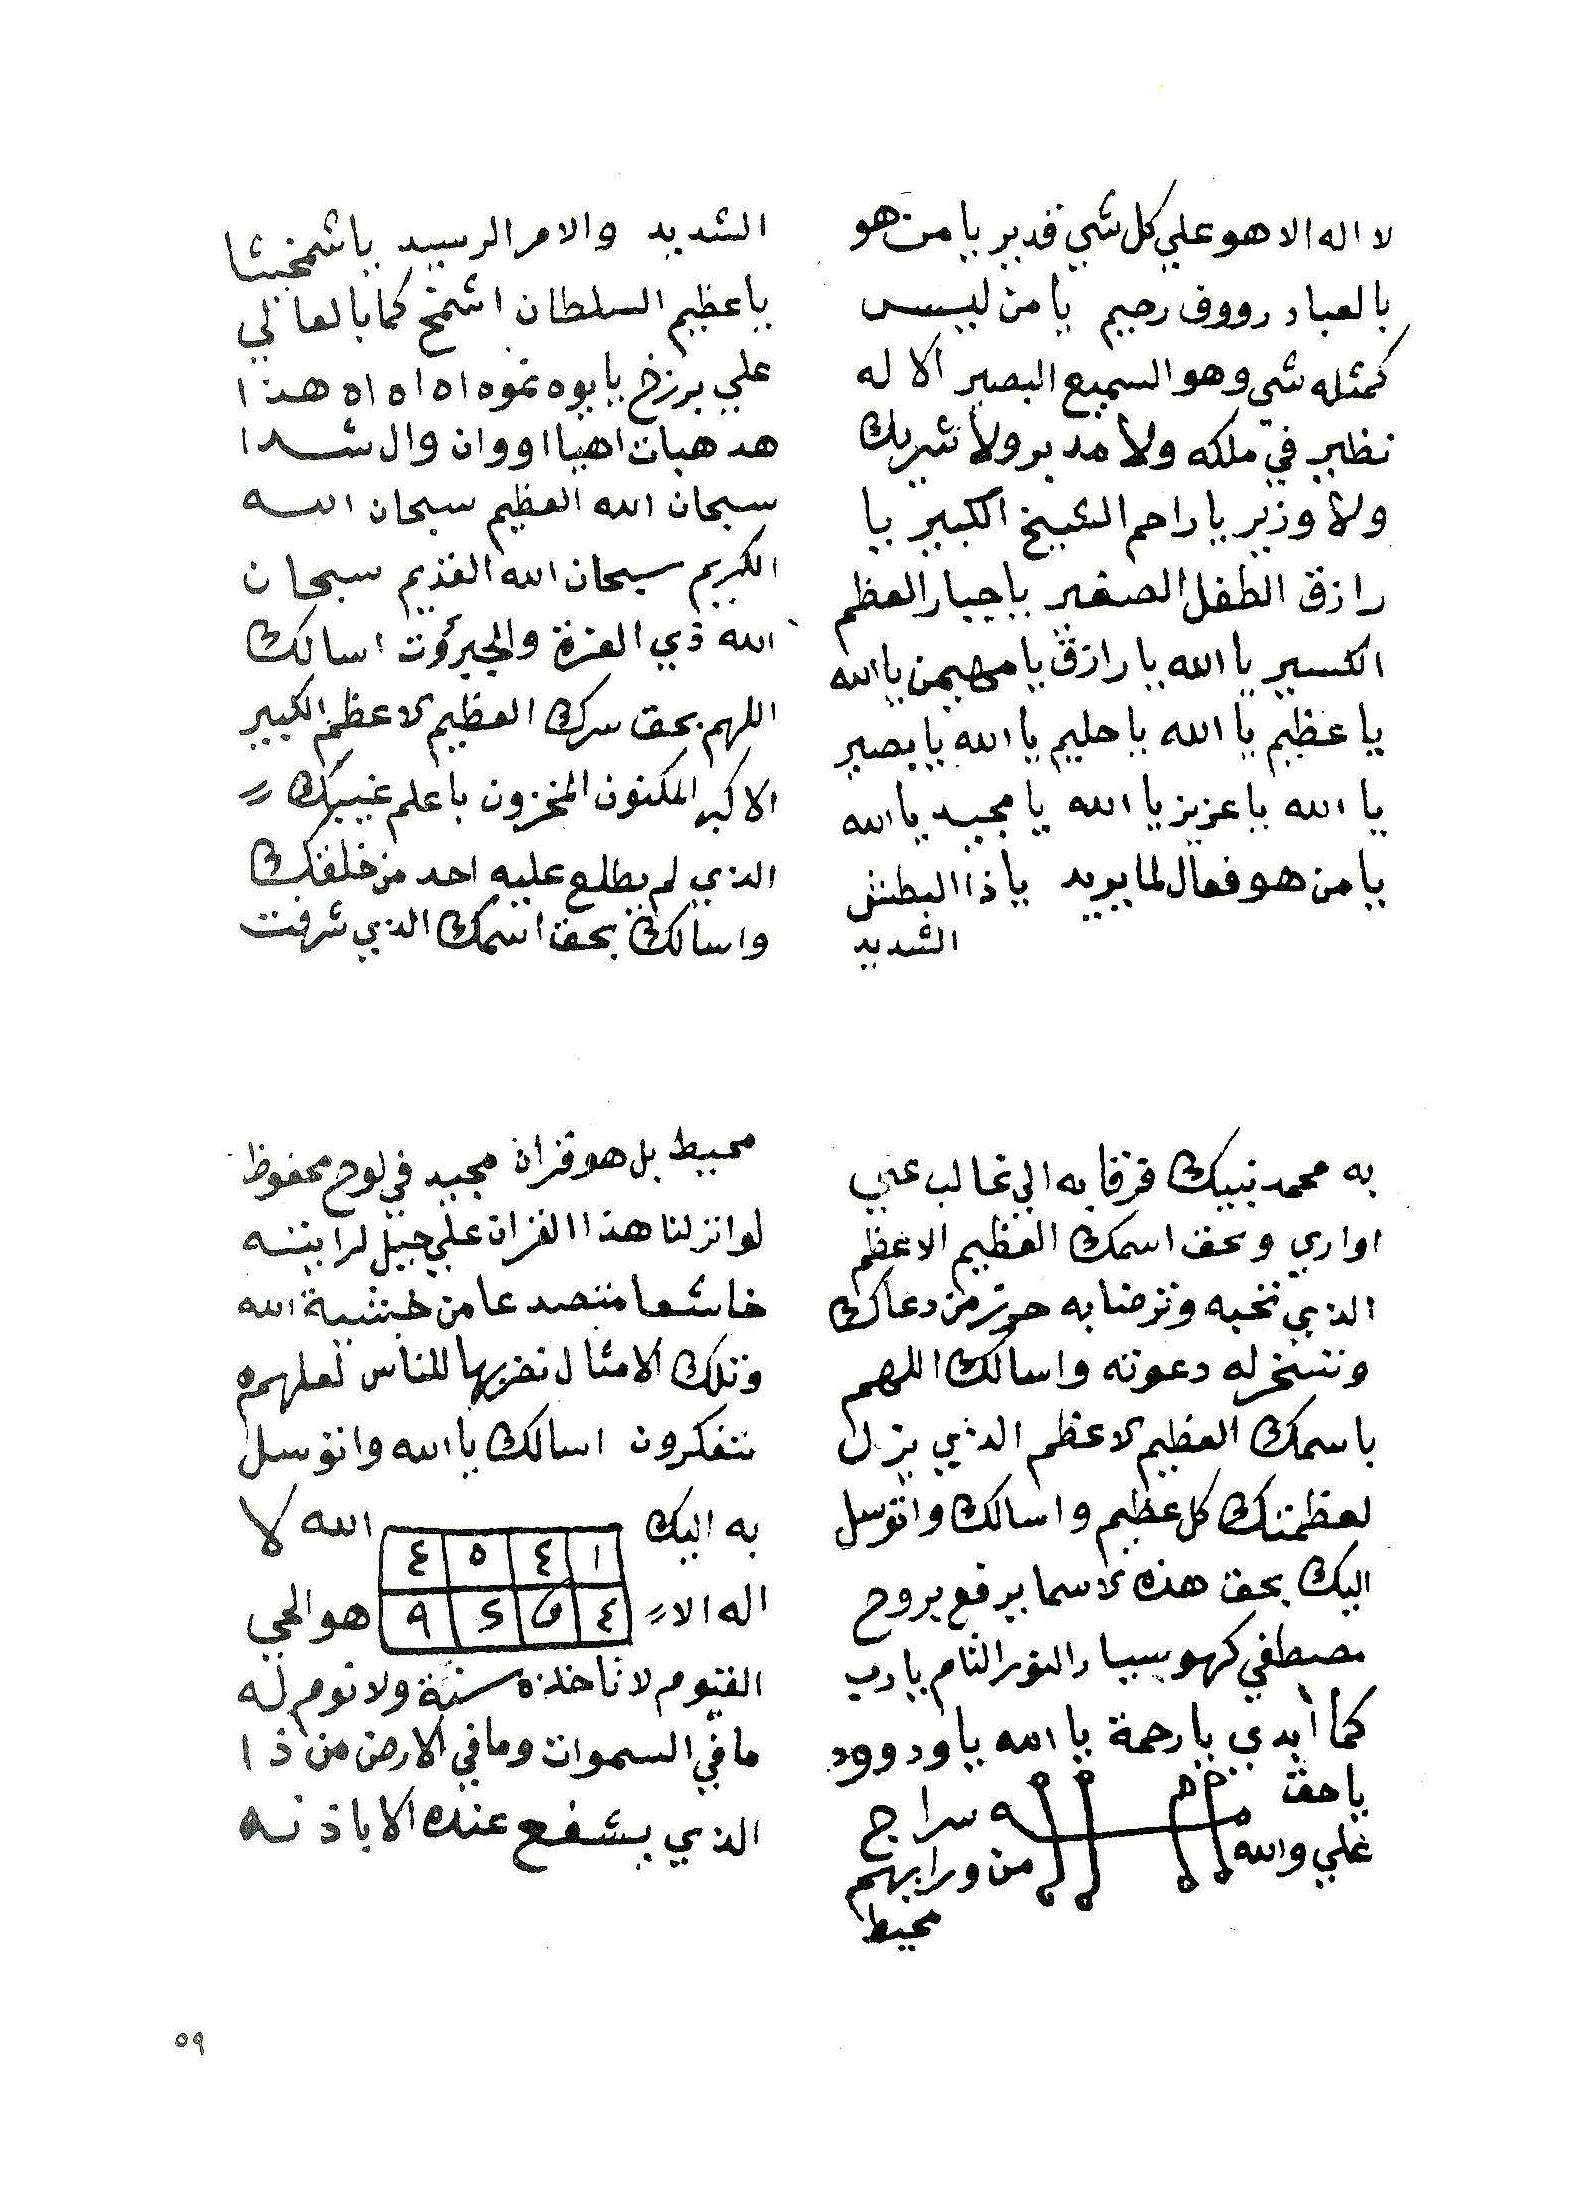 لا اله الا هو علي كل شي قدير يا من هو
بالعباد رووف رحيم يا من ليس
كمثله شي وهو السميع البصير الا له
نظير في ملكه ولا مدبر ولا شريك
ولا وزير يا راحم الشيخ الكبير يا
رازق الطفل الصغير يا جبار العظم
الكسير يا الله يا رازق يا مهيمن يا الله
يا عظيم يا الله يا حليم يا الله يا بصير
يا الله يا عزيز يا الله يا مجيد يا الله
يا من هو فعال لما يريد يا ذا البطش
الشديد
الشديد والامر الرسيد يا شمخيثا
يا عظيم السلطان اشمخ كما بالعالي
علي برزخ يا يوه نموه اه اه اه هذا
هد هبات اهيا اووان وال شدا
سبحان الله العظيم سبحان الله
الكريم سبحان الله القديم سبحان
الله ذي العزة والجبروت اسالك
اللهم بحق سرك العظيم الاعظم الكبير
الاكبر المكنون المخزون با علم غيبك
الذي لم يطلع عليه احد من خلقك
واسالك بحق اسمك الذي شرفت
به محمد نبيك فرقا به الي
اواري وبحق اسمك العظيم الاعظم
الذي تحبه وترضا به من دعاك
وتسخر له دعوته واسالك اللهم
باسمك العظيم الاعظم الذي يزل
لعظمتك كل عظيم واسالك واتوسل
اليك بحق هذه الاسما بيرفع بروح
مصطفي كهو النور التام يا رب
كما أبدي يا رحمة يا الله يا ودوود
يا حق
علي والله
سراج
من ورايهم
محيط
محيط بل هو قران مجيد في لوح محفوظ
لو انزلنا هذا القران علي جبل لرايته
خاشعا متصدعا من خشية الله
وتلك الامثال نضربها للناس لعلهم
تتفكرون اسالك يا الله واتوسل
به اليك ١ ٤ ٥ ٤ الله لا
اله الا ٤ ٥ ٤ ٩ هو الحي
القيوم لا تاخذه سنة ولا نوم له
ما في السموات وما في الارض من ذا
الذي يشفع عنده الا باذنه
٥٩